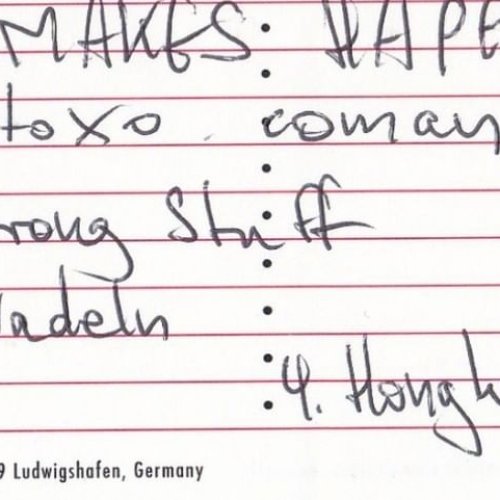 MAKES HAPE
toxo. coman
rong Stuff
ladeln
4. Hongk
9 Ludwigshafen, Germany